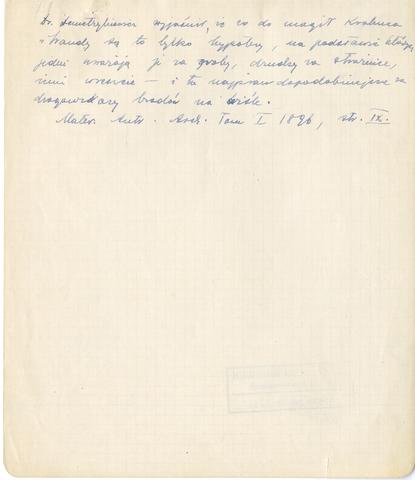 Dr. Demetrykiewicz wyjaśnił, że co do mogił Krakusa
i Wandy są to tylko hypotezy, na podstawie których
jedni uważają je za groby, drudzy za strażnice,
inni wreszcie — i to najprawdopodobniejsze za
drogowskazy brodów na Wiśle.
Mater. Antr. Arch. Tom I 1896, str. IX.